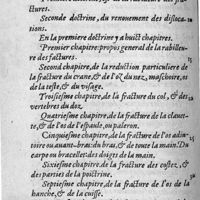 ctures.
Seconde doctrine, du renouement des disloca-
tions.
En la premiere doctrine y a huict chapitres.
Premier chapitre: propos general de la rabilleu-
re des factures.
Second chapitre, de la reduction particuliere de
la fracture du crane, & de l'oz du nez, maschoire, os
de la teste, & du visage.
Troisiesme chapitre, de la fracture du col, & des
vertebres du doz.
Quatriesme chapitre, de la fracture de la clauet-
te, & de l'os de l'espaule, ou paleron.
Cinquiesme chapitre, de la fracture de l'os adiu-
toire ou auant-bras: du bras, & de toute la main. Du
carpe ou bracelet: des doigts de la main.
Sixiesme chapitre, de la fracture des costez, & des
parties de la poictrine.
Septiesme chapitre, de la fracture de l'os de la
hanche, & de la cuisse.